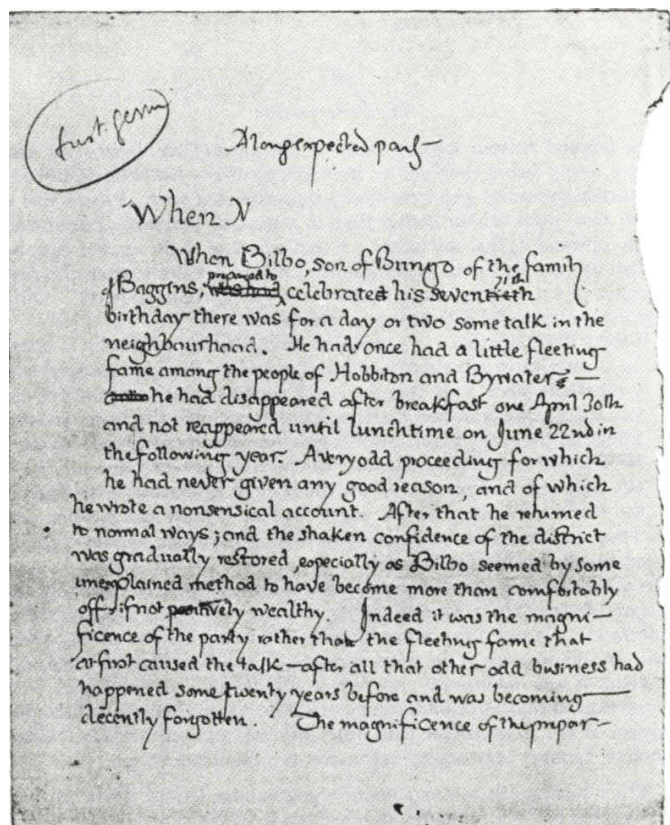 first germ
A long expected party
When N
When Bilbo, son of Bungo of the family
prepared to 71th
of Baggins, was had celebrated his seventieth
birthday there was for a day or two some talk in the
neighbourhood. He had once had a little fleeting
fame among the people of Hobbiton and Bywater —
he had disappeared after breakfast one April 30th
and not reappeared until lunchtime on June 22nd in
the following year. A very odd proceeding for which
he had never given any good reason, and of which
he wrote a nonsensical account. After that he returned
to normal ways; and the shaken confidence of the district
was gradually restored, especially as Bilbo seemed by some
unexplained method to have become more than comfortably
off, if not positively wealthy. Indeed it was the magni-
ficence of the party rather than the fleeting fame that
at first caused the talk — after all that other odd business had
happened some twenty years before and was becoming
decently forgotten. The magnificence of the